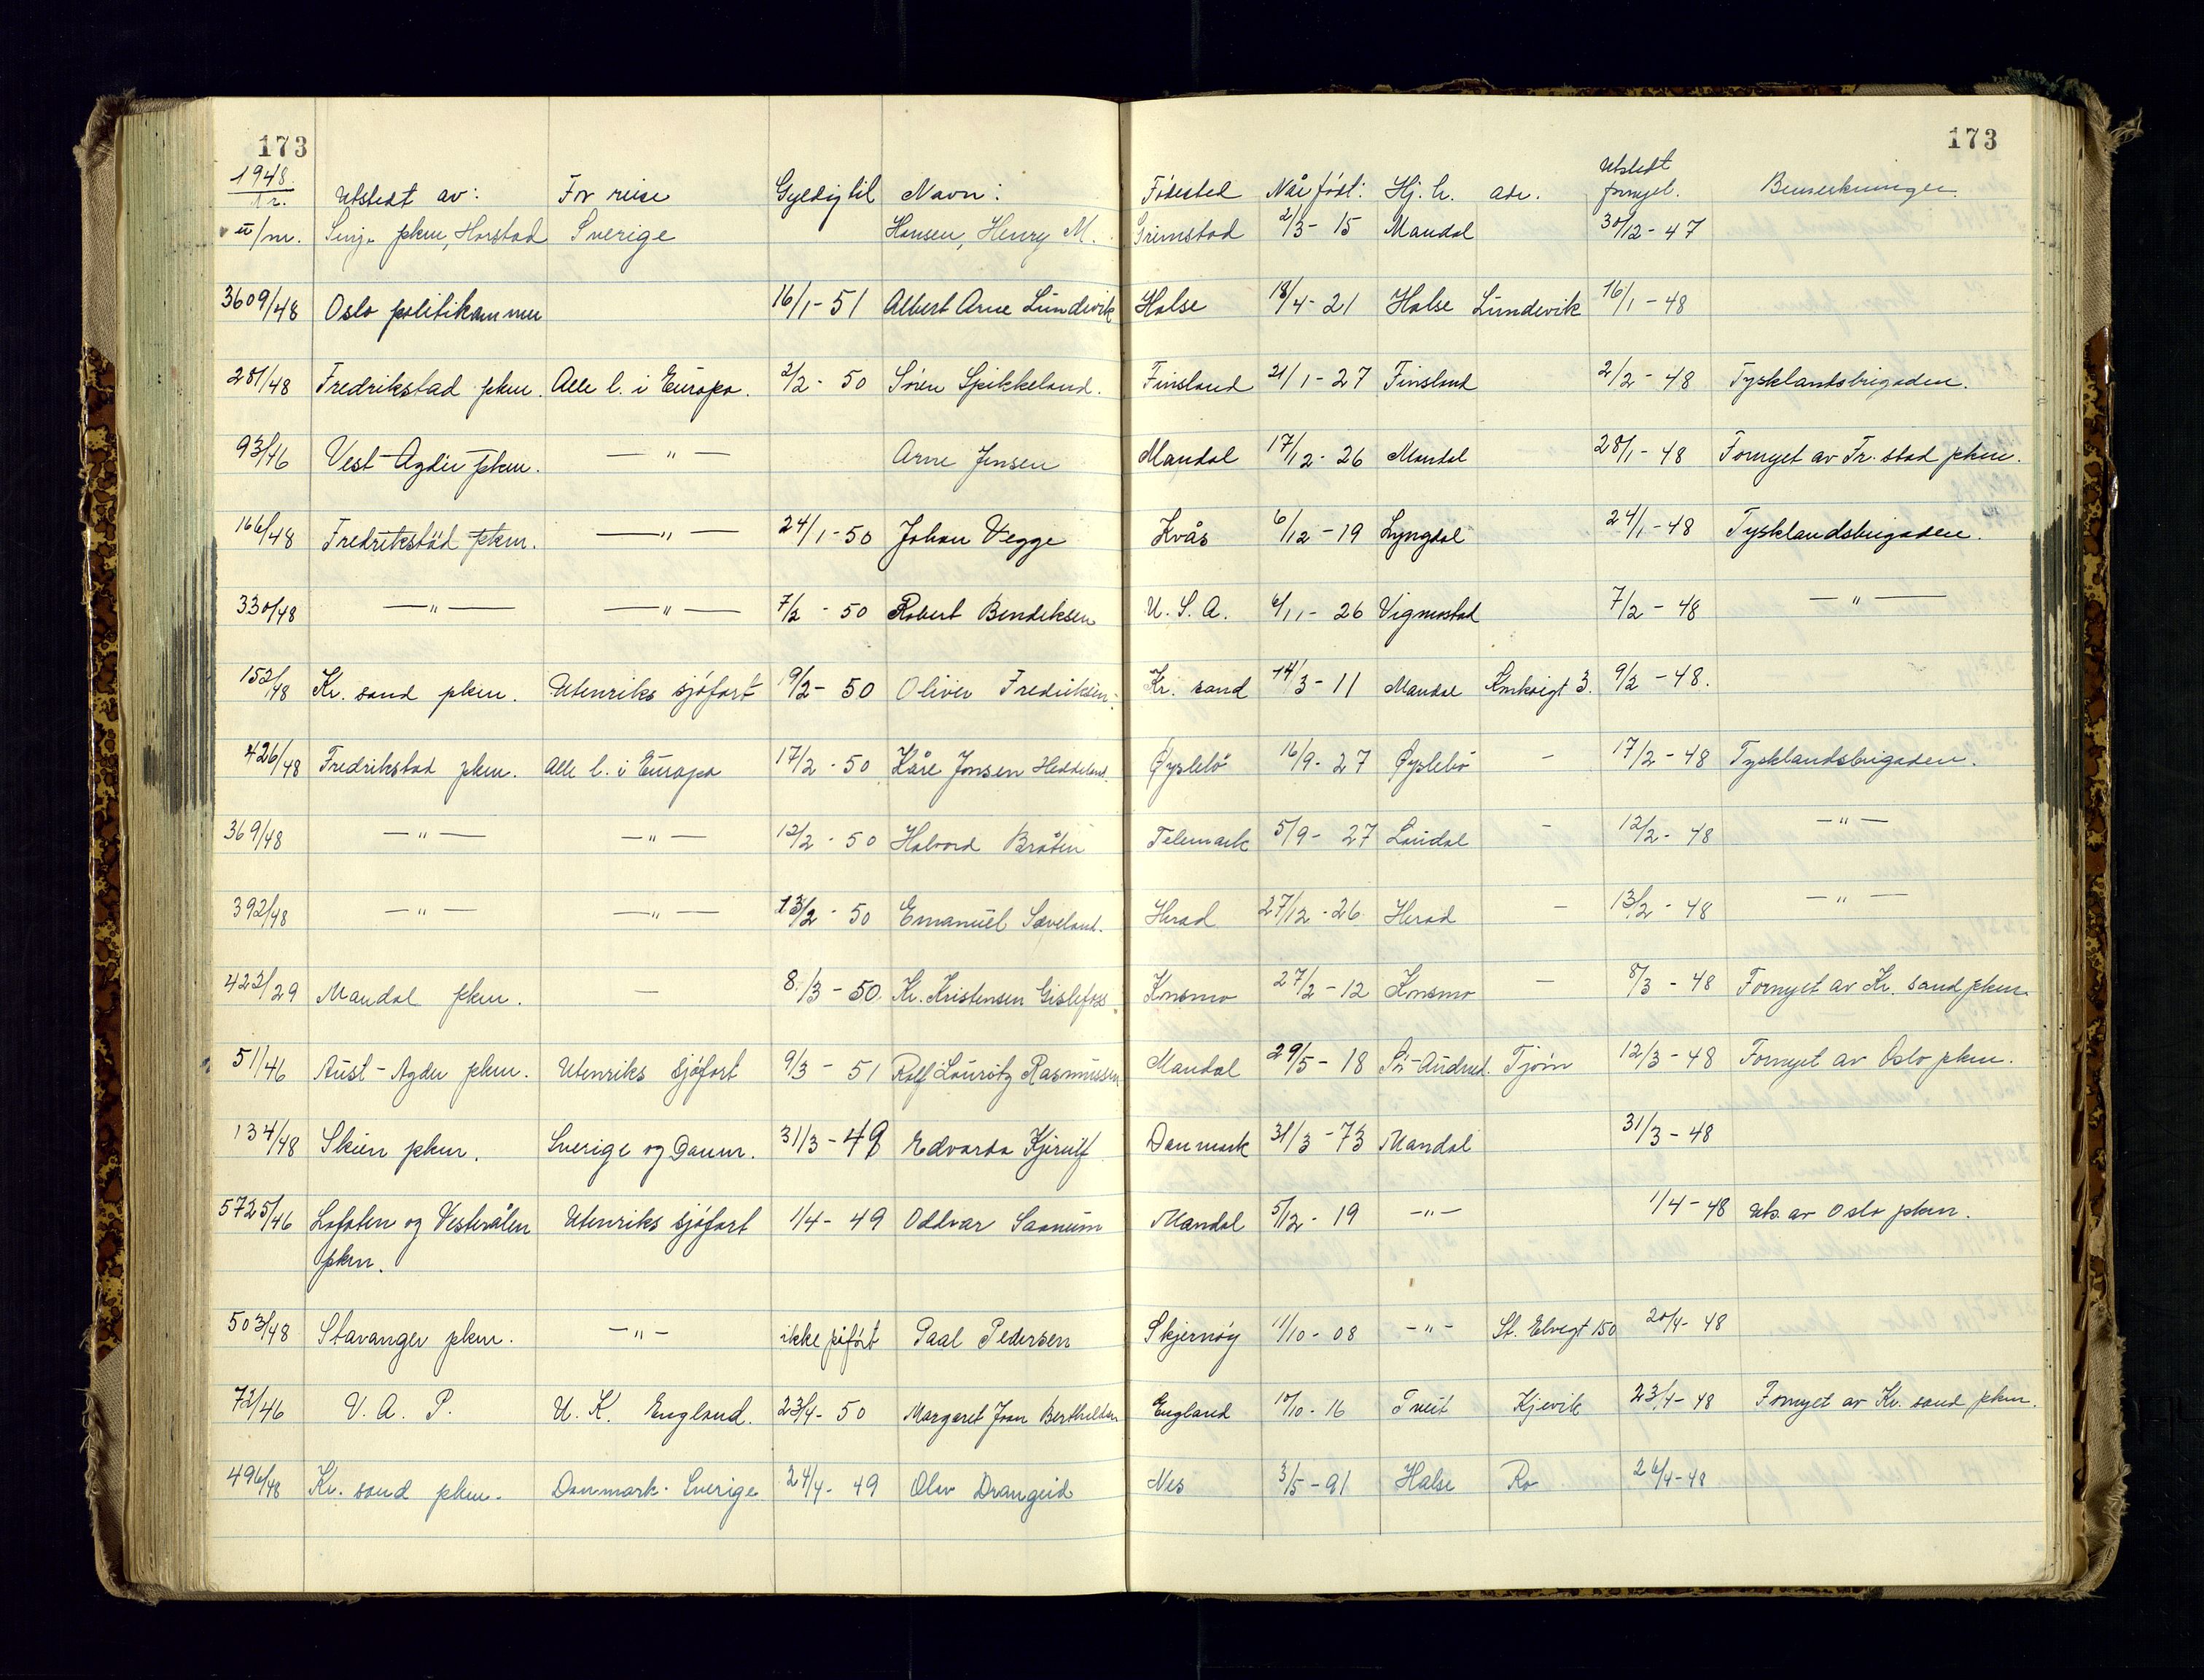 173 173
1948. Nr. Utstedt av: For reise Gyldig til Navn: Fødested Når født: Hj. h. adr. Utstedt fornyet. Bemerkninger
u/nr. Senja pkm, Harstad Sverige Hansen, Henry M. Grimstad 2/3 - 15 Mandal 30/12 - 47
3609/48 Oslo politikammer 16/1 - 51 Albert Arne Lundevik Halse 18/4 - 21 Halse Lundevik 16/1 - 48
281/48 Fredrikstad pkm. Alle l. i Europa. 2/2 - 50 Sören Spikkeland. Finsland 21/1 - 27 Finsland 2/2 - 48 Tysklandsbrigaden.
93/46 Vest-Agder pkm. — " — Arne Jensen Mandal 17/12 - 26 Mandal 28/1 - 48 Fornyet av Fr. stad pkm.
166/48 Fredrikstad pkm. — " — 24/1 - 50 Johan Vegge Kvås 6/12 - 19 Lyngdal 24/1 - 48 Tysklandsbrigaden.
330/48 — " — — " — 7/2 - 50 Robert Bendiksen U. S. A. 6/11 - 26 Vigmostad 7/2 - 48 — " —
152/48 Kr. sand pkm. Utenriks sjöfart 9/2 - 50 Oliver Fredriksen. Kr. sand 14/3 - 11 Mandal 3. 9/2 - 48.
426/48 Fredrikstad pkm. Alle l. i Europa 17/2 - 50 Kåre Jonsen Heddeland. Øyslebö 16/9 - 27 Øyslebö - 17/2 - 48 Tysklandsbrigaden.
369/48 — " — — " — 12/2 - 50 Halvord Bråten Telemark 5/9 - 27 Laudal - 12/2 - 48 — " —
392/48 — " — — " — 13/2 - 50 Emanuel Sæveland. Herad 27/12 - 26. Herad - 13/2 - 48 — " —
422/29 Mandal pkm. — 8/3 - 50. Kr. Kristensen Gislefoss. Konsmo 27/2 - 12 Konsmo — 8/3 - 48 Fornyet av Kr. sand pkm.
51/46 Aust-Agder pkm. Utenriks sjöfart 9/3 - 51 Rolf Lauritz Rasmussen Mandal 29/5 - 18 Sör-Audned. Tjörn 12/3 - 48 Fornyet av Oslo pkm.
134/48 Skien pkm. Sverige og Danm. 31/3 - 49 Edvarda Kjerulf Danmark 31/3 - 73 Mandal 31/3 - 48
5725/46 Lofoten og Vesterålen Utenriks sjöfart 1/4 - 49 Oddvar Saanum Mandal 5/12 - 19 - " - 1/4 - 48 uts. av Oslo pkm.
pkm.
503/48 Stavanger pkm. - " - ikke påfört Paal Pedersen Skjernöy 11/10 - 08 - " - St. Elvegt 150 20/4 - 48
72/46 V. A. P. U. K. England. 23/4 - 50 Margaret Joan Berthelsen England 10/10 - 16 Tveit Kjevik 23/4 - 48 Fornyet av Kr. sand pkm.
496/48 Kr. sand pkm. Danmark - Sverige 24/4 - 49 Olav Drangeid Nes 3/5 - 91 Halse Ro 26/4 - 48